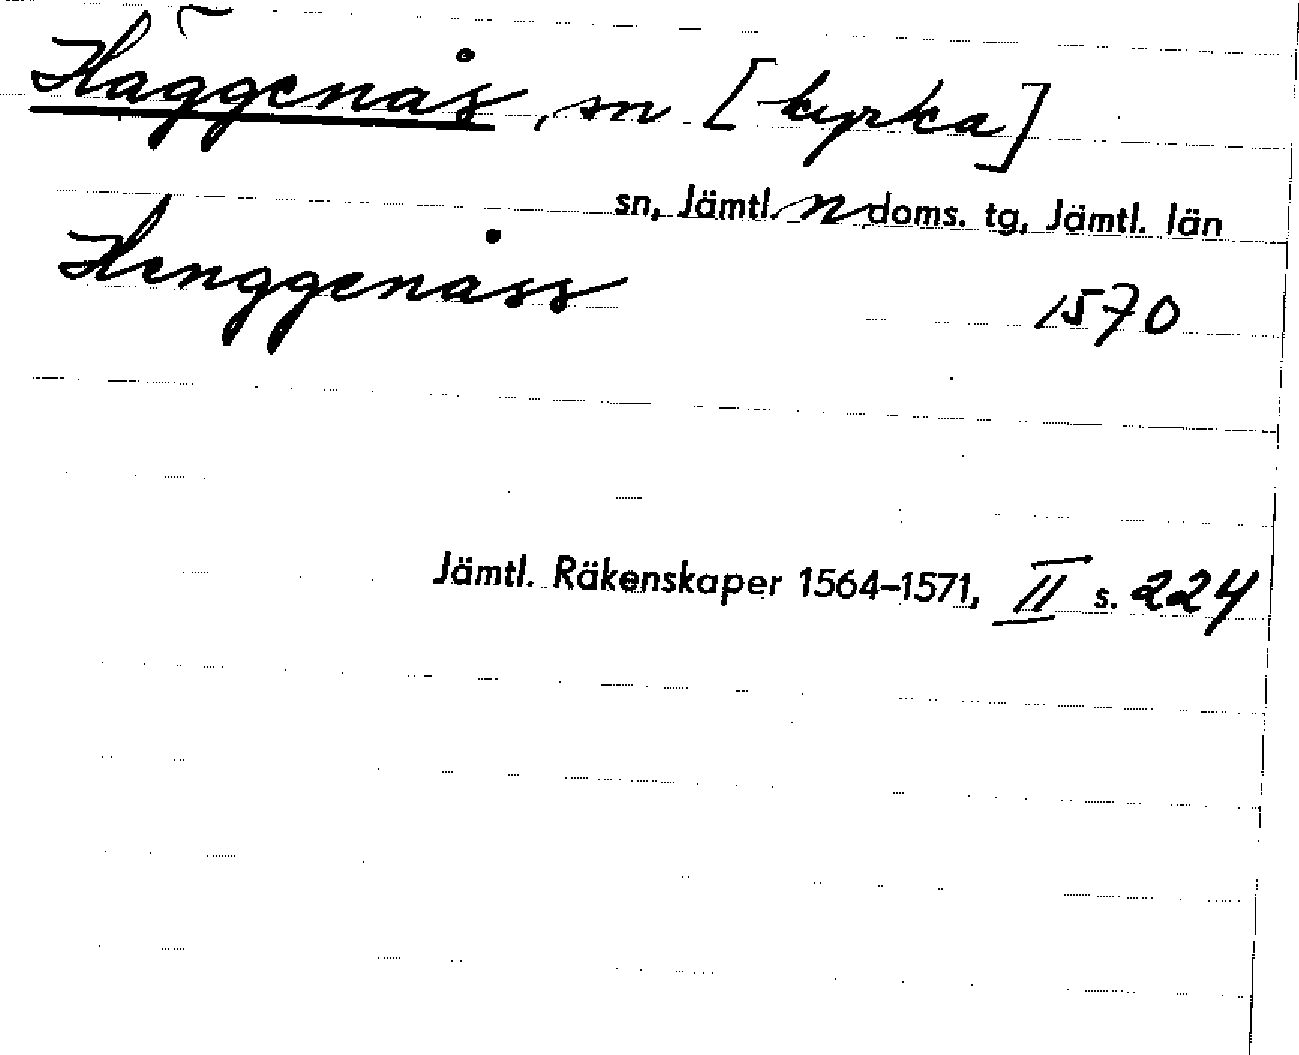 Häggenås, sn [kyrka]
sn, Jämtl. n doms. tg, Jämtl. län
Henggenåss 1570
Jämtl. Räkenskaper 1564–1571, II s. 224